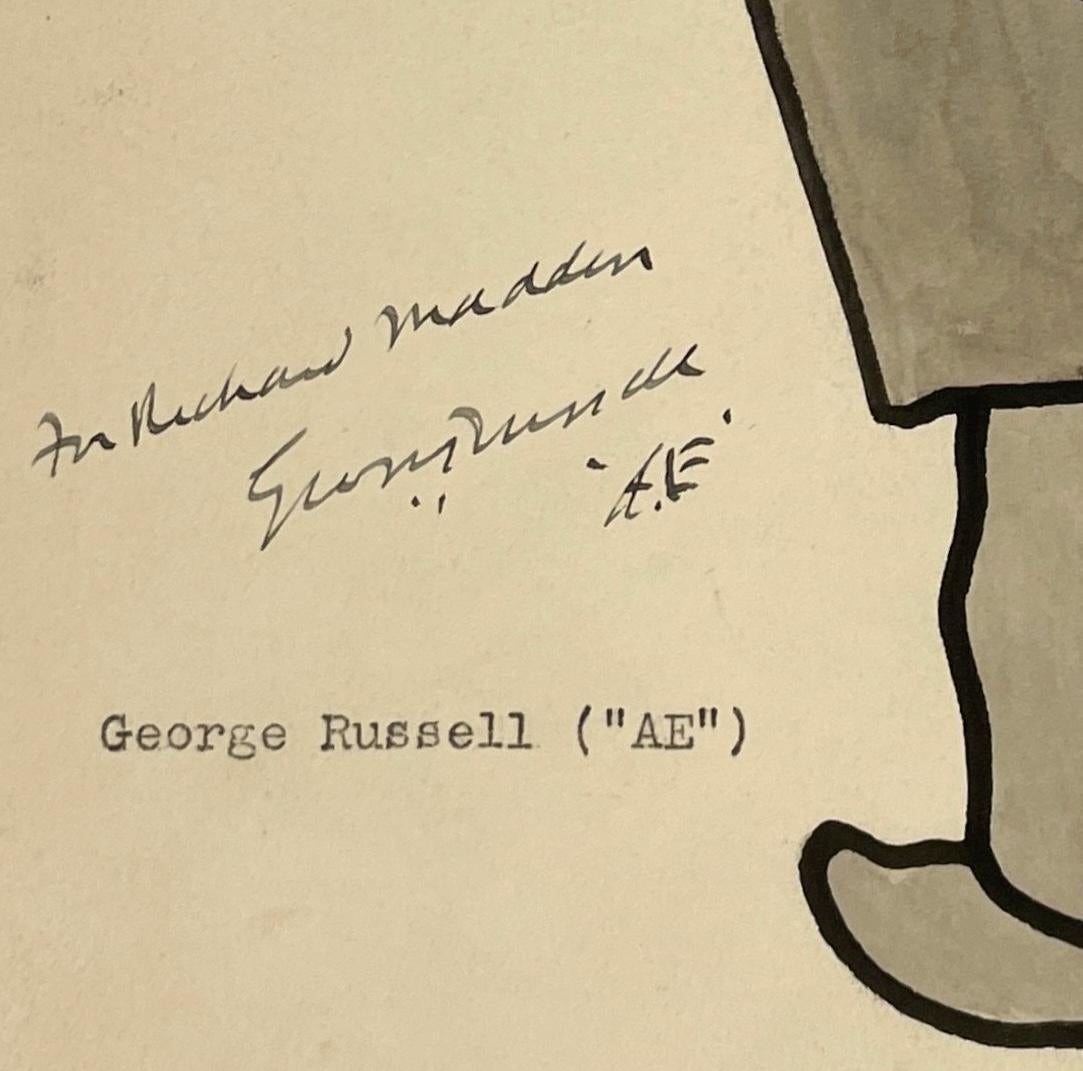 For Richard Madden
George Russell
"A.E"
George Russell ("AE")